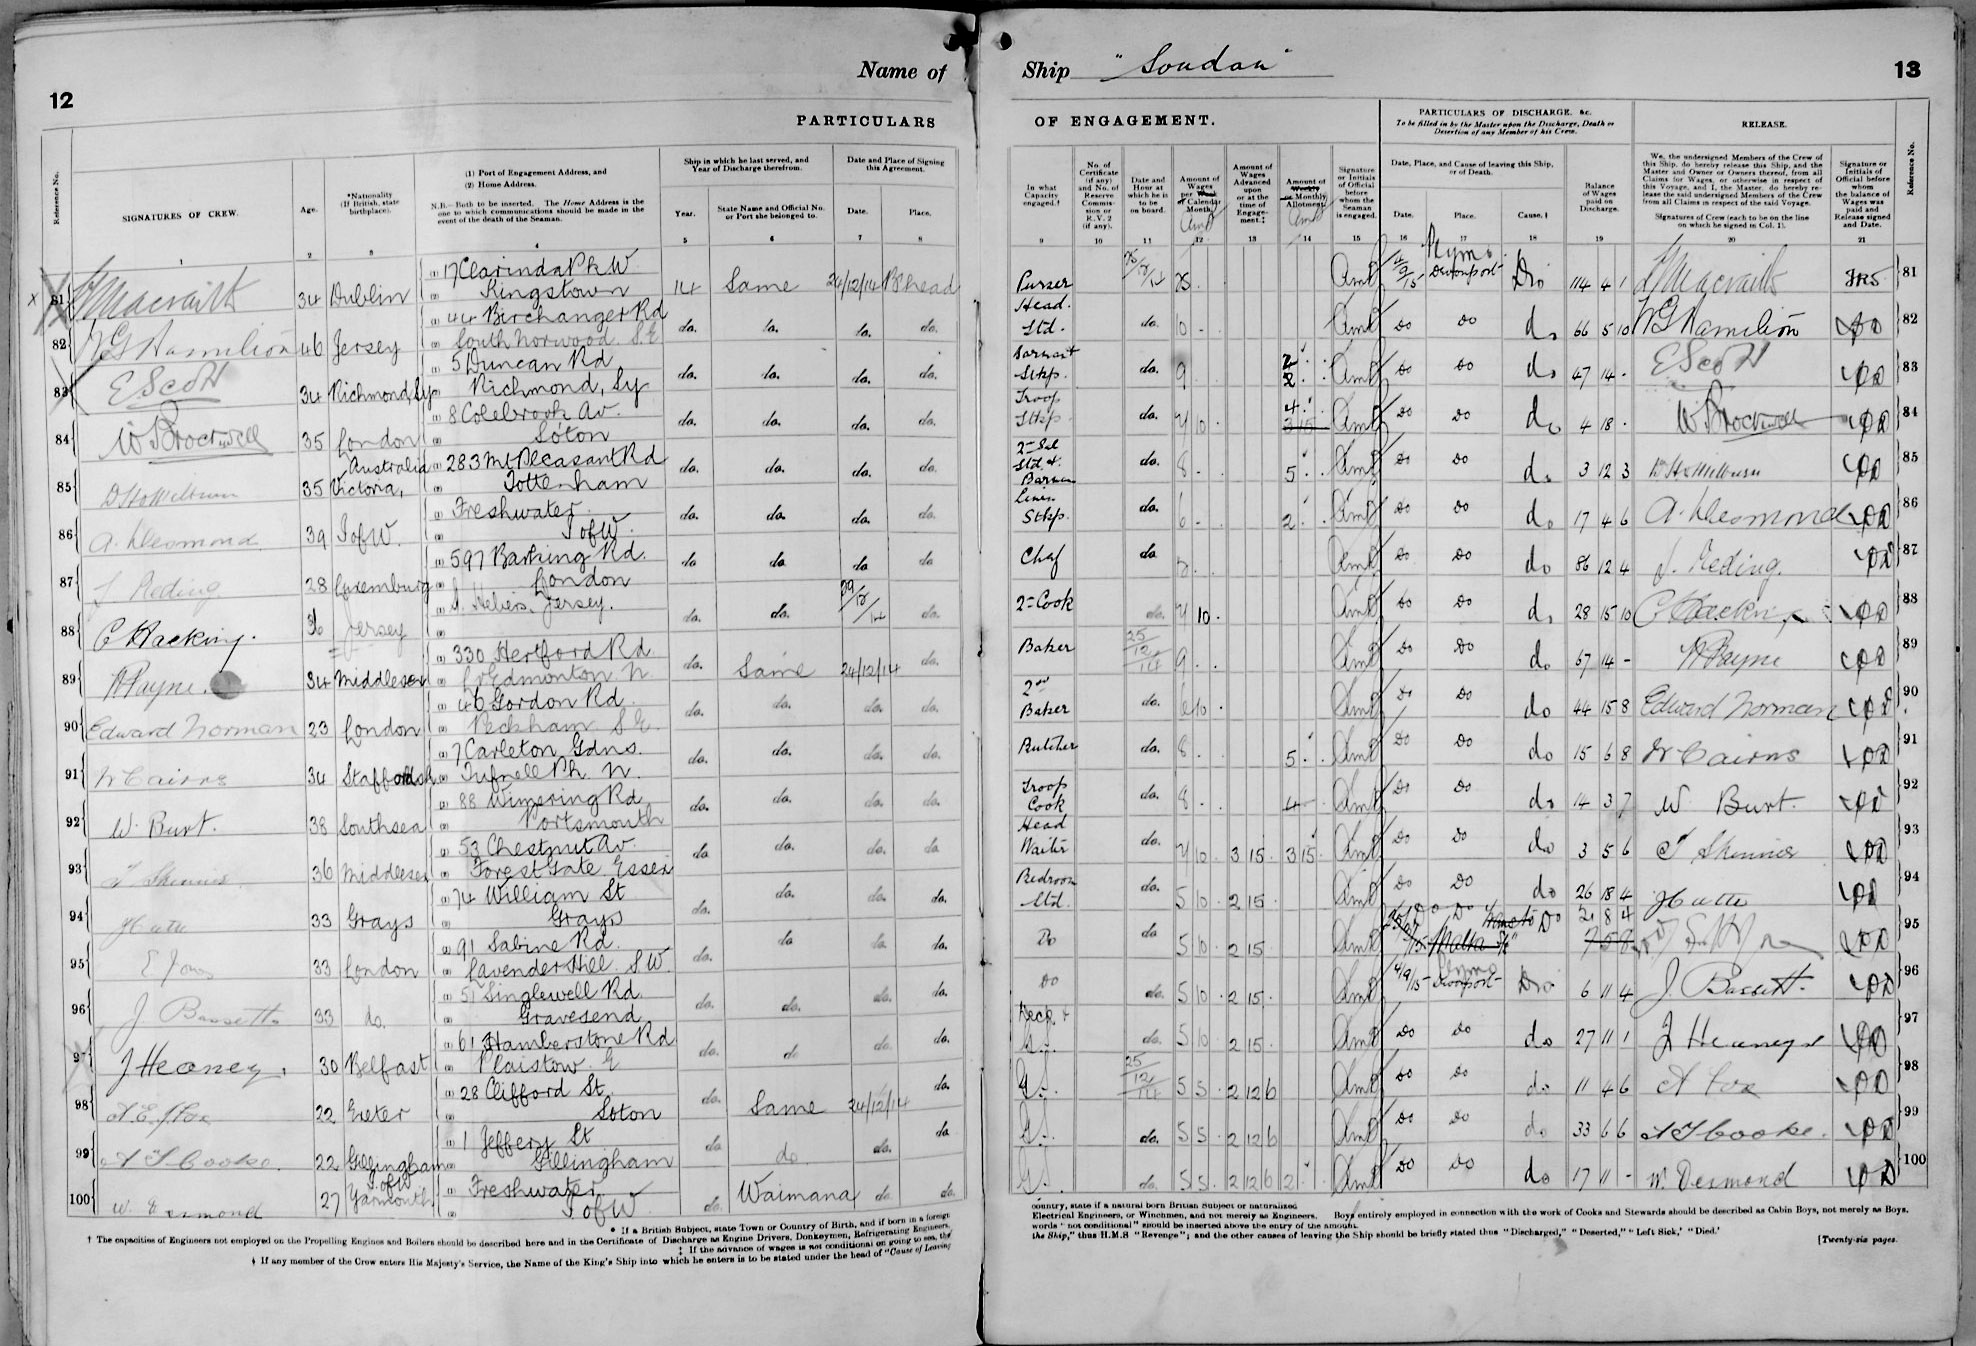 12
Name of
Ship "Soudan"
13
PARTICULARS
OF ENGAGEMENT.
Reference No.
SIGNATURES OF CREW.
Age.
*Nationality
(If British, state
birthplace).
(1) Port of Engagement Address, and
(2) Home Address.
N.B.—Both to be inserted. The Home Address is the
one to which communications should be made in the
event of the death of the Seaman.
Ship in which he last served, and
Year of Discharge therefrom.
Year.
State Name and Official No.
or Port she belonged to.
Date and Place of Signing
this Agreement.
Date.
Place.
In what
Capacity
engaged.†
No. of
Certificate
(if any)
and No. of
Reserve
Commis-
sion or
R.V.2
(if any).
Date and
Hour at
which he is
to be
on board.
Amount of
Wages
per Week
or Calendar
Month.
Amount of
Wages
Advanced
upon
or at the
time of
Engage-
ment.‡
Amount of
Weekly
or Monthly
Allotment.
Signature
or Initials
of Official
before
whom the
Seaman
is engaged.
PARTICULARS OF DISCHARGE, &c.
To be filled in by the Master upon the Discharge, Death or
Desertion of any Member of his Crew.
Date, Place, and Cause of leaving this Ship,
or of Death.
Date.
Place.
Cause.§
Balance
of Wages
paid on
Discharge.
RELEASE.
We, the undersigned Members of the Crew of
this Ship, do hereby release this Ship, and the
Master and Owner or Owners thereof, from all
Claims for Wages, or otherwise in respect of
this Voyage, and I, the Master, do hereby re-
lease the said undersigned Members of the Crew
from all Claims in respect of the said Voyage.
Signatures of Crew (each to be on the line
on which he signed in Col. 1).
Signature or
Initials of
Official before
whom
the balance of
Wages was
paid and
Release signed
and Date.
Reference No.
1 2 3 4 5 6 7 8 9 10 11 12 13 14 15 16 17 18 19 20 21
81 34 Dublin 17 Clarinda Pk W. Kingstown 14 Same 24/12/14 B'head Purser Plymo Devonport Dis 114 4 1 81
82 W G Hamilton 46 Jersey 44 Birchanger Rd South Norwood. S.E do. do. do. do. Head. Std. do. 10 - Do Do do 66 5 10 W G Hamilton 82
83 E Scott 34 Richmond, Sy 5 Duncan Rd Richmond, Sy do. do. do. do. Stkp. do. 9 Do Do do 47 14 - E Scott 83
84 W Brockwell 35 London 8 Colebrook Av. Soton do. do. do. do. Troop Stkp. do. 7 10 Do Do do 4 18 - W Brockwell 84
85 35 Australia Victoria, 283 Mt Pleasant Rd Tottenham do. do. do. do. Std. & Barman do. 8 - 5 Do Do do 3 12 3 85
86 A. Desmond 39 I of W. Freshwater I of W. do. do. do. do. Linen Stkp. do. 6 - 2 Do Do do 17 4 6 A. Desmond 86
87 J Reding 28 Luxemburg 597 Barking Rd. London do do do do Chef do Do Do do 86 12 4 J. Reding. 87
88 C Hacking. 36 Jersey St. Heliers, Jersey. do. do. 29/12/14 do. 2nd Cook do. 7 10 Do Do do 28 15 10 C Hacking 88
89 Payne. 34 Middlesex 330 Hertford Rd Lr Edmonton N. do. Same 24/12/14 do. Baker 25/12/14 9 Do Do do 67 14 - Payne 89
90 Edward Norman 23 London 46 Gordon Rd. Peckham S.E. do. do. do. do. 2nd Baker do. 6 10 Do Do do 44 15 8 Edward Norman 90
91 W Cairns 34 Staffordsh 7 Carleton Gdns. Tufnell Pk N. do. do. do. do. Butcher do. 8 5 Do Do do 15 6 8 W Cairns 91
92 W. Burt. 38 Southsea 88 Wimering Rd Portsmouth do. do. do. do. Troop Cook do. 8 - 4 Do Do do 14 3 7 W Burt. 92
93 Skinner 36 Middlesex 53 Chestnut Av. Forest Gate Essex do do. do. do. Head Waiter do. 7 10 3 15 3 15 Do Do do 3 5 6 Skinner 93
94 33 Grays 74 William St Grays do. do. do. do. Bedroom Std. do. 5 10 2 15 Do Do do 26 18 4 94
95 E Jones 33 London 91 Sabine Rd. Lavender Hill. S.W. do. do do. do. Do do 5 10 2 15 Malta Do 95
96 J Bassett 33 do. 51 Singlewell Rd. Gravesend do. do. do. do. Do do. 5 10 2 15 4/9/15 Plymo Devonport Dis 6 11 4 J. Bassett. 96
97 J Heaney. 30 Belfast 61 Hamberstone Rd Plaistow. E do. do do. do. Deck & G.S. do. 5 10 2 15 Do Do do 27 11 1 J Heaney 97
98 A. E. J Cox 22 Exeter 28 Clifford St Soton do. Same 24/12/14 do. G.S. 25/12/14 5 5 2 12 6 Do Do do 11 4 6 A Cox 98
99 A T Cooke. 22 Gillingham 1 Jeffery St Gillingham do do do. do G.S. do. 5 5 2 12 6 Do Do do 33 6 6 A T Cooke. 99
100 W. Desmond 27 I of W Yarmouth Freshwater I of W. do. Waimana do. do. G.S. do. 5 5 2 12 6 2 Do Do do 17 11 - W. Desmond 100
* If a British Subject, state Town or Country of Birth, and if born in a foreign
country, state if a natural born British Subject or naturalized
† The capacities of Engineers not employed on the Propelling Engines and Boilers should be described here and in the Certificate of Discharge as Engine Drivers, Donkeymen, Refrigerating Engineers,
Electrical Engineers, or Winchmen, and not merely as Engineers. Boys entirely employed in connection with the work of Cooks and Stewards should be described as Cabin Boys, not merely as Boys.
‡ If the advance of wages is not conditional on going to sea, the
words "not conditional" should be inserted above the entry of the amount.
§ If any member of the Crew enters His Majesty's Service, the Name of the King's Ship into which he enters is to be stated under the head of "Cause of Leaving
the Ship," thus H.M.S "Revenge"; and the other causes of leaving the Ship should be briefly stated thus "Discharged," "Deserted," "Left Sick,' "Died.'
[Twenty-six pages.